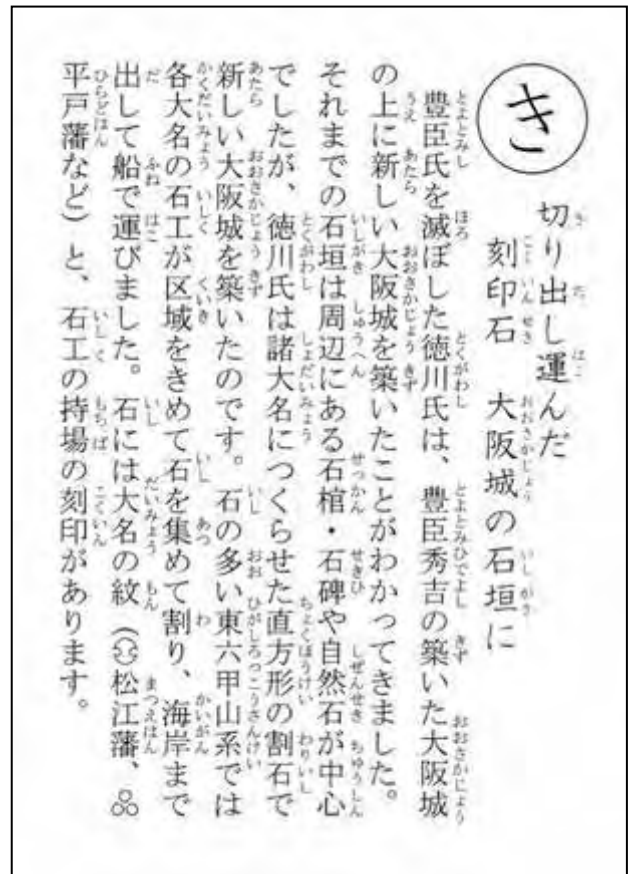 き
切り出し運んだ
刻印石 大阪城の石垣に
豊臣氏を滅ぼした徳川氏は、豊臣秀吉の築いた大阪城
の上に新しい大阪城を築いたことがわかってきました。
それまでの石垣は周辺にある石棺・石碑や自然石が中心
でしたが、徳川氏は諸大名につくらせた直方形の割石で
新しい大阪城を築いたのです。石の多い東六甲山系では
各大名の石工が区域をきめて石を集めて割り、海岸まで
出して船で運びました。石には大名の紋（松江藩、
平戸藩など）と、石工の持場の刻印があります。